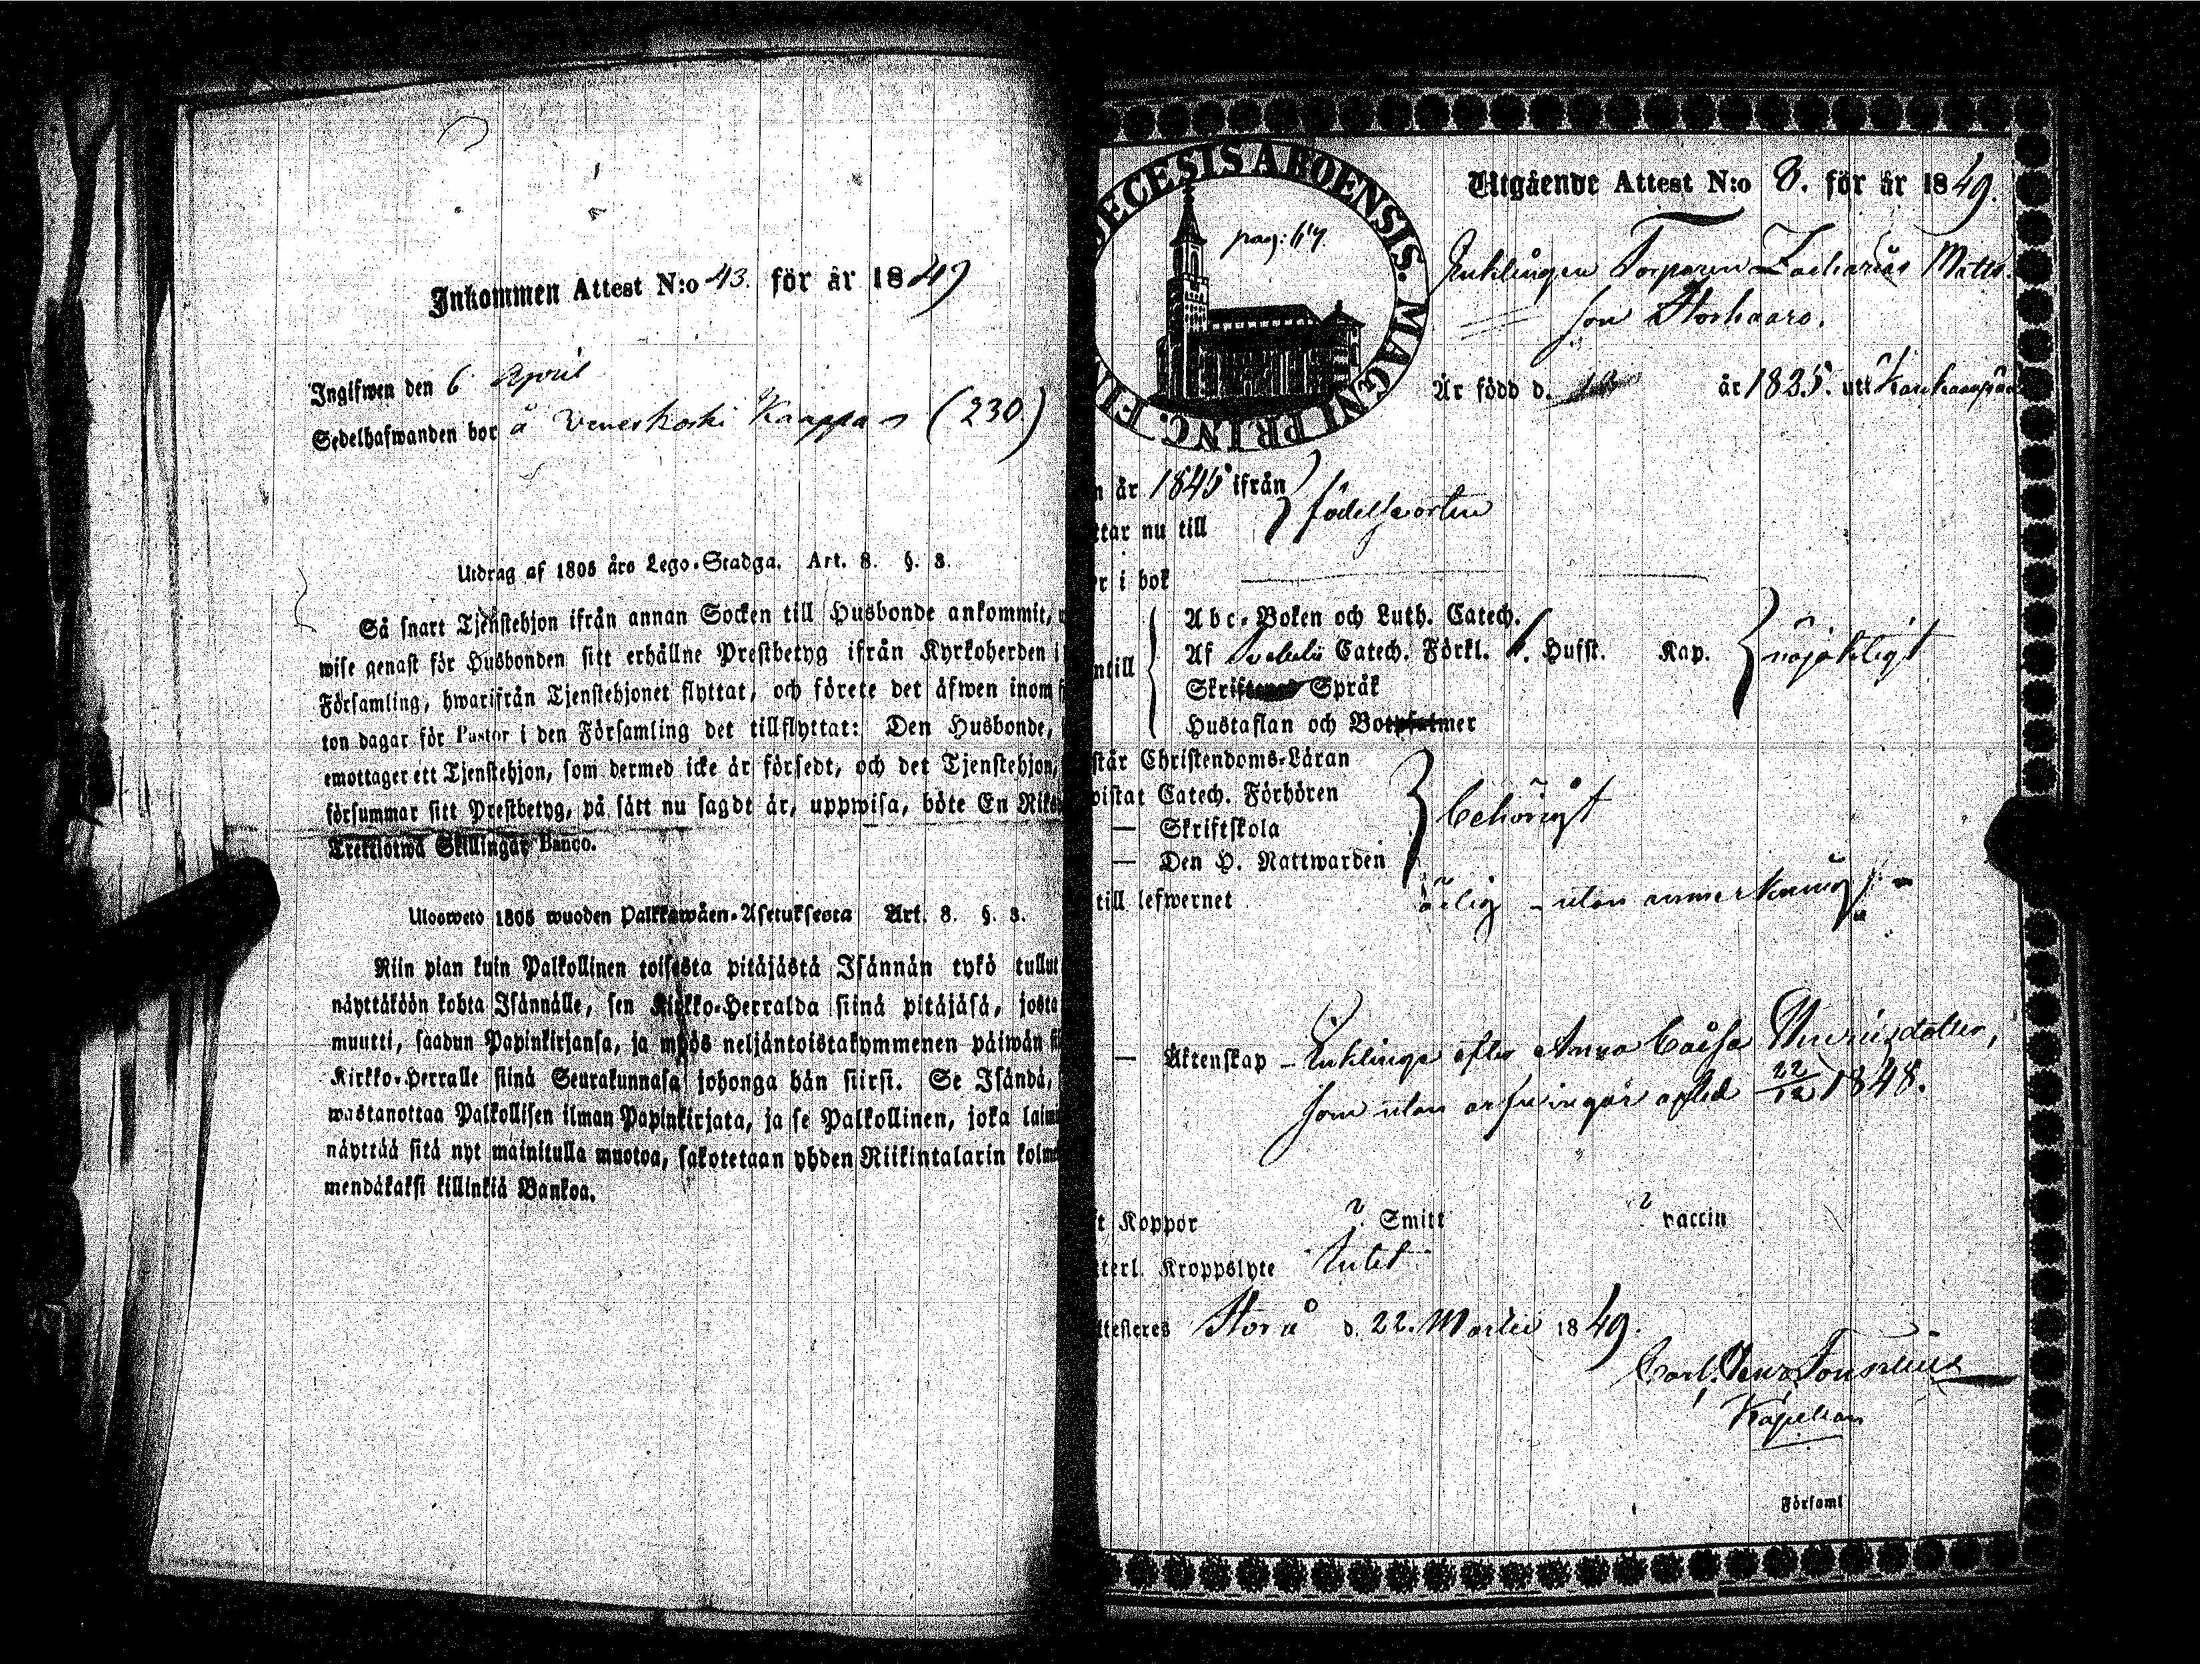 Inkommen Attest N:o 43. för år 1849
Ingifwen den 6 April
Sedelhafwanden bor å Veneskoski Kaappa (230)
Utdrag af 1805 års Lego-Stadga. Art. 8. §. 3.
Så snart Tjenstehjon ifrån annan Socken till Husbonde ankommit,
wise genast för Husbonden sitt erhållne Prestbetyg ifrån Kyrkoherden i
Församling, hwarifrån Tjenstehjonet flyttat, och förete det äfwen inom
ton dagar för Pastor i den Församling det tillflyttat: Den Husbonde,
emottager ett Tjenstehjon, som dermed icke är försedt, och det Tjenstehjon,
försummar sitt Prestbetyg, på sätt nu sagdt är, uppwisa, böte En Riks
Trettiotwå Skillingar Banco.
Ulosweto 1805 wuoden Palkkawäen-Asetuksesta Art. 8. §. 3.
Niin pian kuin Palkollinen toisesta pitäjästä Isännän tykö tullut
näyttäköön kohta Isännälle, sen Kirkko-Herralda siinä pitäjäsä, josta
muutti, saadun Papinkirjansa, ja myös neljäntoistakymmenen päiwän
Kirkko-Herralle siinä Seurakunnasa johonga hän siirsi. Se Isändä,
wastanottaa Palkollisen ilman Papinkirjata, ja se Palkollinen, joka
näyttää sitä nyt mainitulla muotoa, sakotetaan yhden Riikintalarin
mendäkaksi killinkiä Bankoa.
DECESIS ABOENSIS. MAGNI PRINC. FI
pag: 67.
Utgående Attest N:o 8. för år 1849.
Enklingen Torparen Zacharias Matts
son Storhaaro.
Är född d. år 1825. uti Kauhaajoki
år 1845 ifrån
ttar nu till
födelseorten
r i bok
Abc-Boken och Luth. Catech.
ntill Af Svebelii Catech. Förkl. Husst. Kap. nöjaktigt
Språk
Hustaflan och
står Christendoms-Läran
wistat Catech. Förhören
— Skriftskola behörigt
— Den H. Nattwarden
till lefwernet ärlig - utan anmerkning
— Äktenskap - Enkling efter Anna Caisa
som utan arfvingar afled 22/12 1848.
t Koppor ? Smitt ? vaccin
terl. Kroppslyte Intet
ttesteres Storå d. 22. Martii 1849.
Carl
Kapellan
Församl